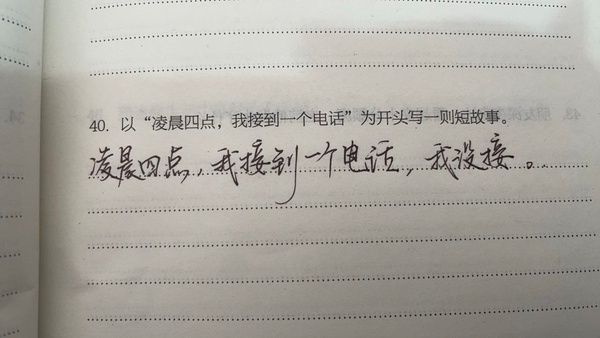 40. 以“凌晨四点，我接到一个电话”为开头写一则短故事。
凌晨四点，我接到一个电话，我没接。
34.